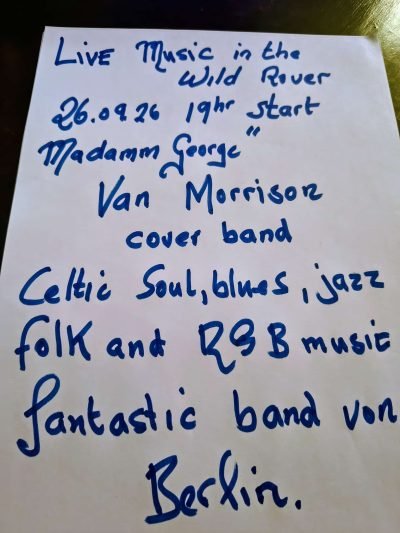 Live Music in the
Wild Rover
26.09.26 19hr start
Madamm George"
Van Morrison
cover band
Celtic Soul, blues, jazz
folk and R&B music
fantastic band von
Berlin.